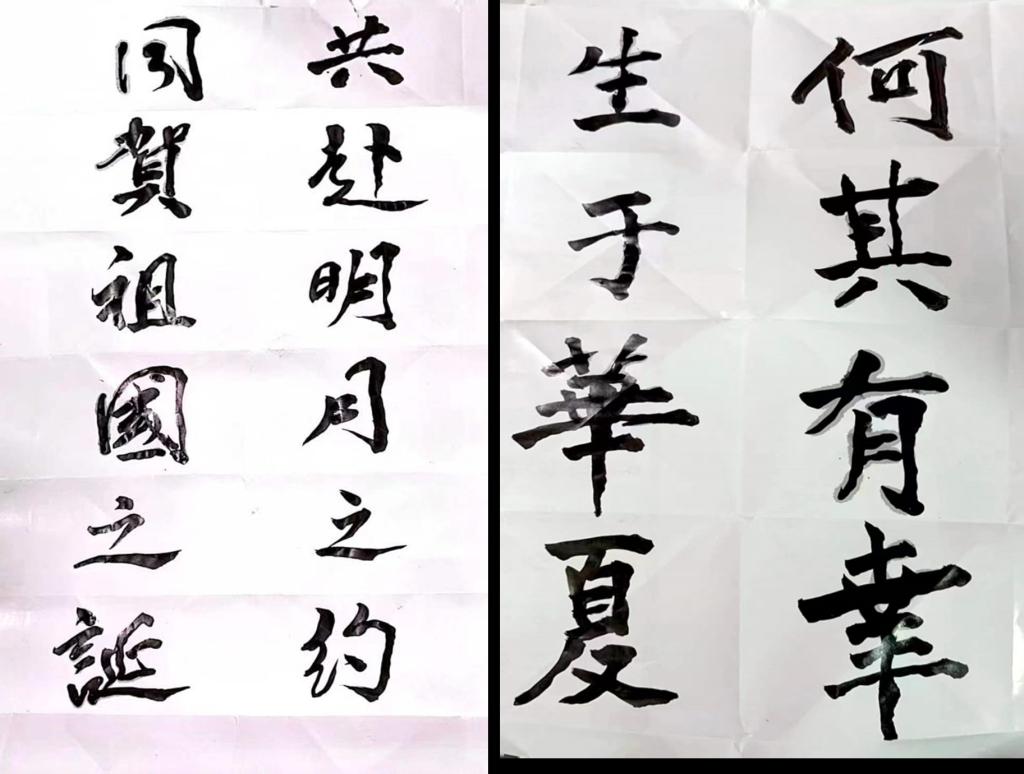 共赴明月之约
同賀祖國之誕
何其有幸
生于華夏